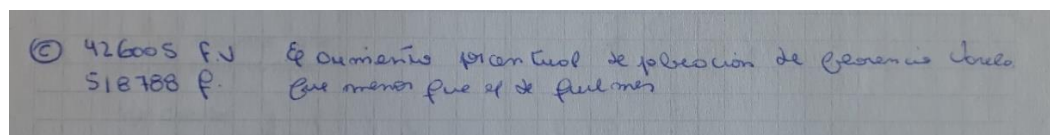 Ⓒ 426005 F.V El aumento porcentual de población de Florencio Varela
518788 Q. fue menor que el de Quilmes